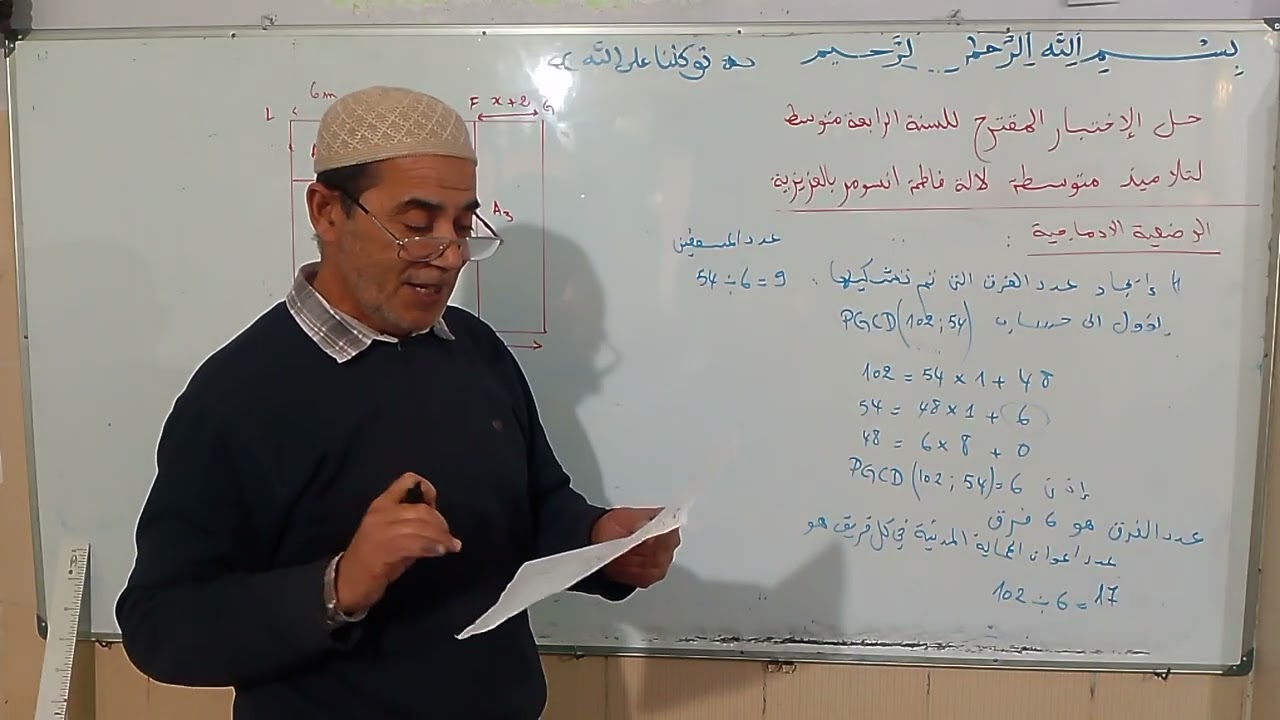 بسم الله الرحمن الرحيم « توكلنا على الله »
حل الإختبار المقترح للسنة الرابعة متوسط
لتلاميذ متوسطة لالة فاطمة انسومر بالعزيزية
الوضعية الادماجية :
1/ إيجاد عدد الفرق التي تم تشكيلها .
PGCD(102;54) نؤول الى حساب
102 = 54 × 1 + 48
54 = 48 × 1 + 6
48 = 6 × 8 + 0
إذن PGCD(102;54)=6
عدد الفرق هو 6 فرق
عدد اعوان الحماية المدنية في كل فريق هو
102 ÷ 6 = 17
عدد المسعفين
54 ÷ 6 = 9
6m
F x+2 G
A3